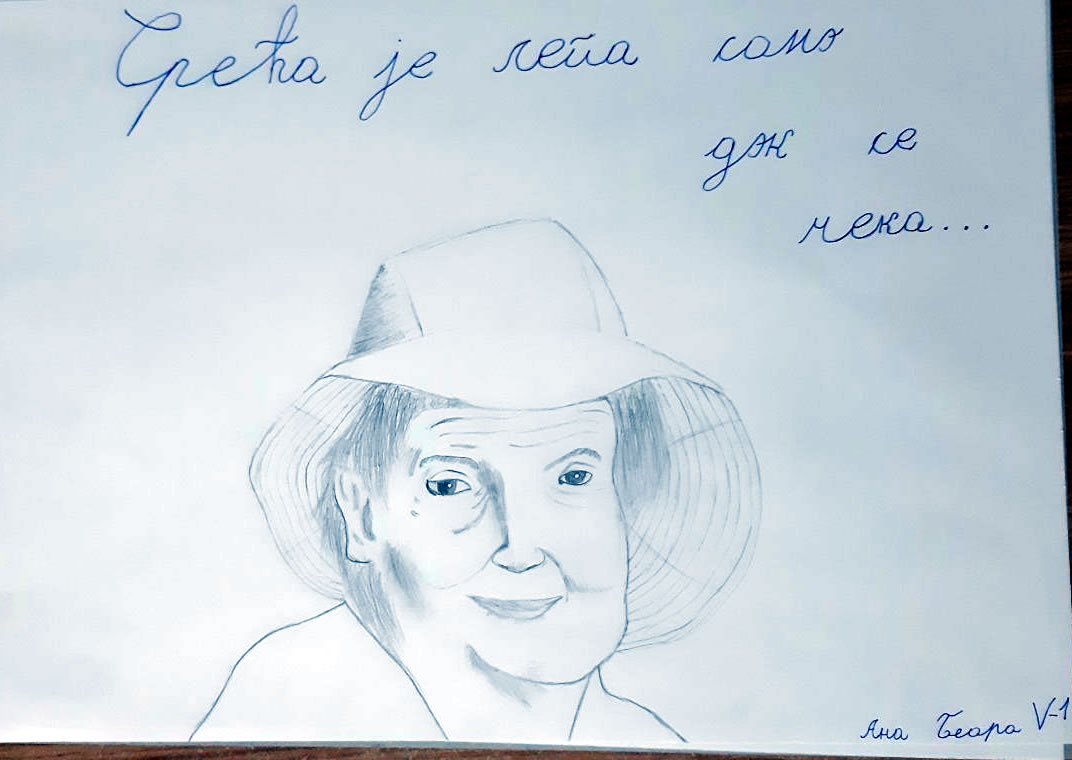 Срећа је лепа само
док се
чека...
Ана Беара V-1